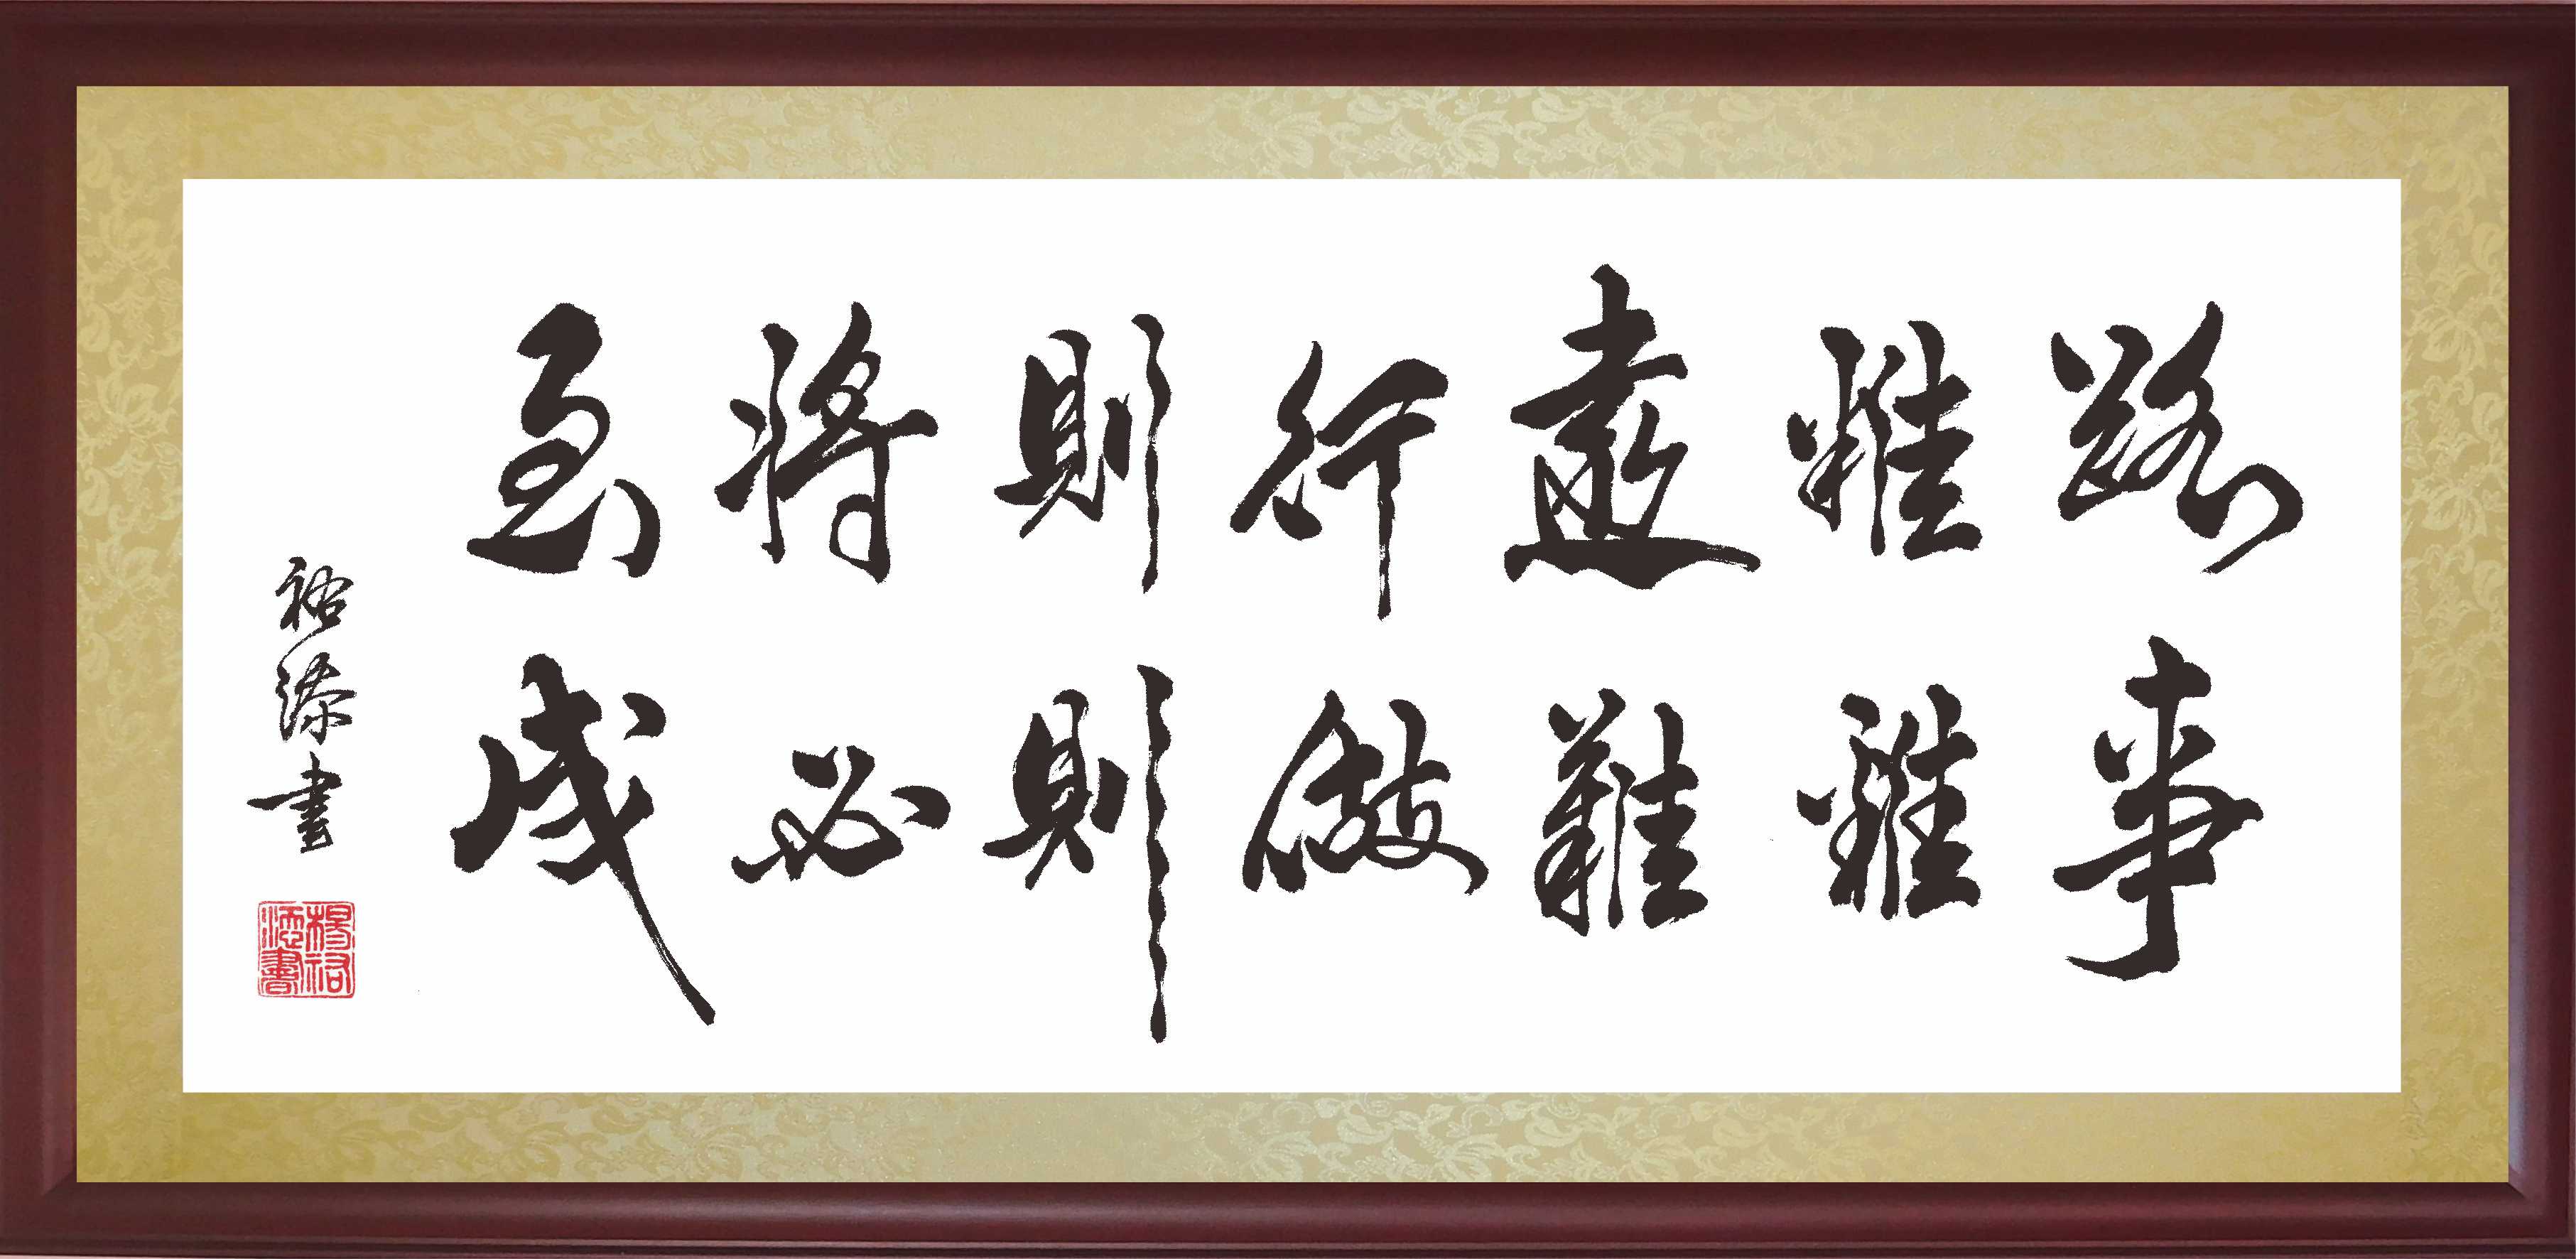 路雖遠行則將至
事雖難做則必成
裕添書
楊裕
添書